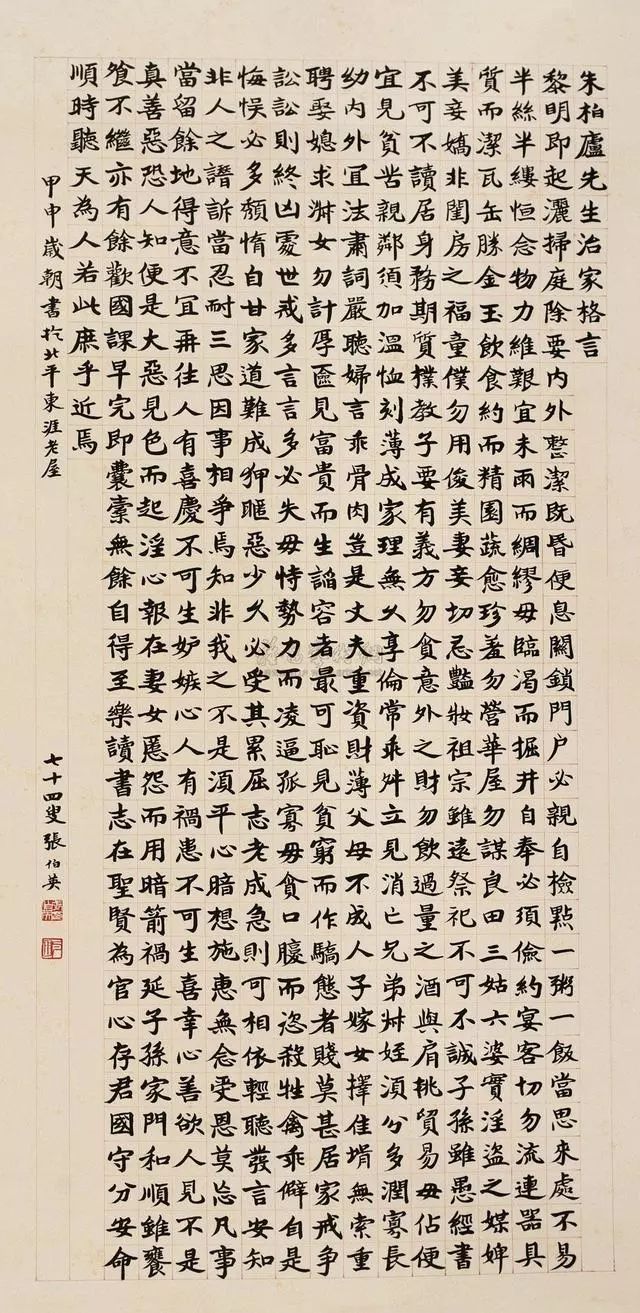 朱柏廬先生治家格言
黎明即起灑掃庭除要內外整潔既昏便息關鎖門戶必親自檢點一粥一飯當思來處不易
半絲半縷恒念物力維艱宜未雨而綢繆毋臨渴而掘井自奉必須儉約宴客切勿流連器具
質而潔瓦缶勝金玉飲食約而精園蔬愈珍羞勿營華屋勿謀良田三姑六婆實淫盜之媒婢
美妾嬌非閨房之福童僕勿用俊美妻妾切忌豔妝祖宗雖遠祭祀不可不誠子孫雖愚經書
不可不讀居身務期質樸教子要有義方勿貪意外之財勿飲過量之酒與肩挑貿易毋佔便
宜見貧苦親鄰須加溫恤刻薄成家理無久享倫常乖舛立見消亡兄弟叔姪須分多潤寡長
幼內外宜法肅詞嚴聽婦言乖骨肉豈是丈夫重資財薄父母不成人子嫁女擇佳壻無索重
聘娶媳求淑女勿計厚奩見富貴而生諂容者最可恥見貧窮而作驕態者賤莫甚居家戒爭
訟訟則終凶處世戒多言言多必失毋恃勢力而凌逼孤寡毋貪口腹而恣殺牲禽乖僻自是
悔悮必多頹惰自甘家道難成狎暱惡少久必受其累屈志老成急則可相依輕聽發言安知
非人之譖訴當忍耐三思因事相爭焉知非我之不是須平心暗想施惠無念受恩莫忘凡事
當留餘地得意不宜再往人有喜慶不可生妒嫉心人有禍患不可生喜幸心善欲人見不是
真善惡恐人知便是大惡見色而起淫心報在妻女匿怨而用暗箭禍延子孫家門和順雖饔
飧不繼亦有餘歡國課早完即囊橐無餘自得至樂讀書志在聖賢為官心存君國守分安命
順時聽天為人若此庶乎近焉
甲申歲朝書於北平東涯老屋
七十四叟張伯英